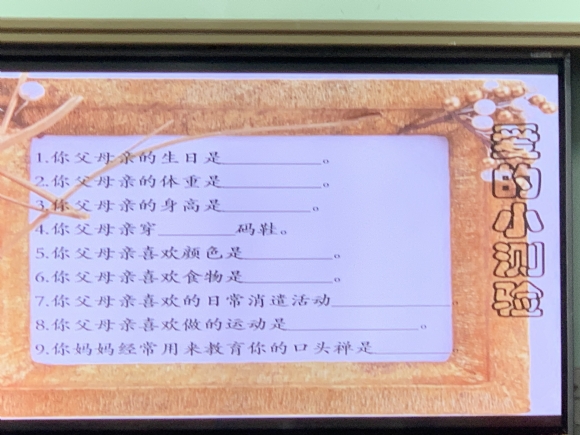 1.你父母亲的生日是__________。
2.你父母亲的体重是__________。
3.你父母亲的身高是_________。
4.你父母亲穿________码鞋。
5.你父母亲喜欢颜色是_________。
6.你父母亲喜欢食物是_________。
7.你父母亲喜欢的日常消遣活动____________。
8.你父母亲喜欢做的运动是_____________。
9.你妈妈经常用来教育你的口头禅是________。
孝的小测验